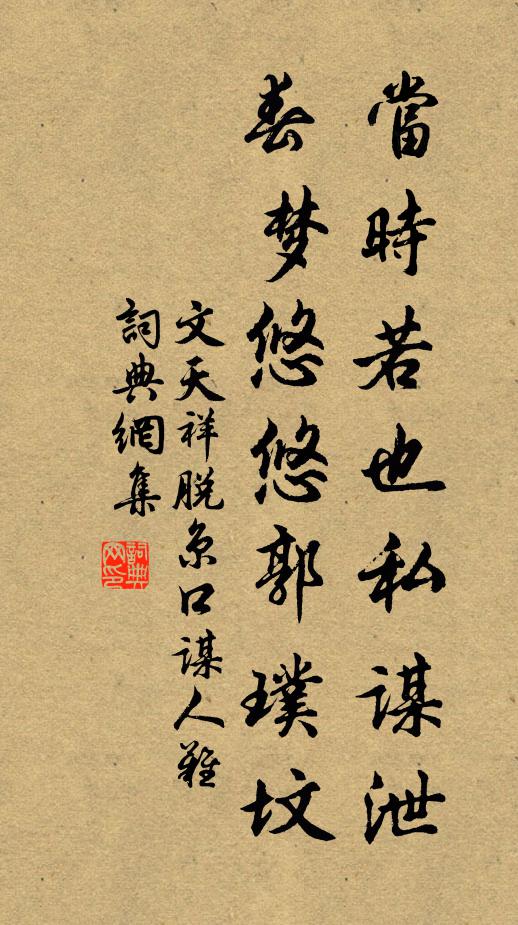 當時若也私謀泄
春梦悠悠郭璞坟
文天祥脫京口謀人難
詞典網集
詞典网印